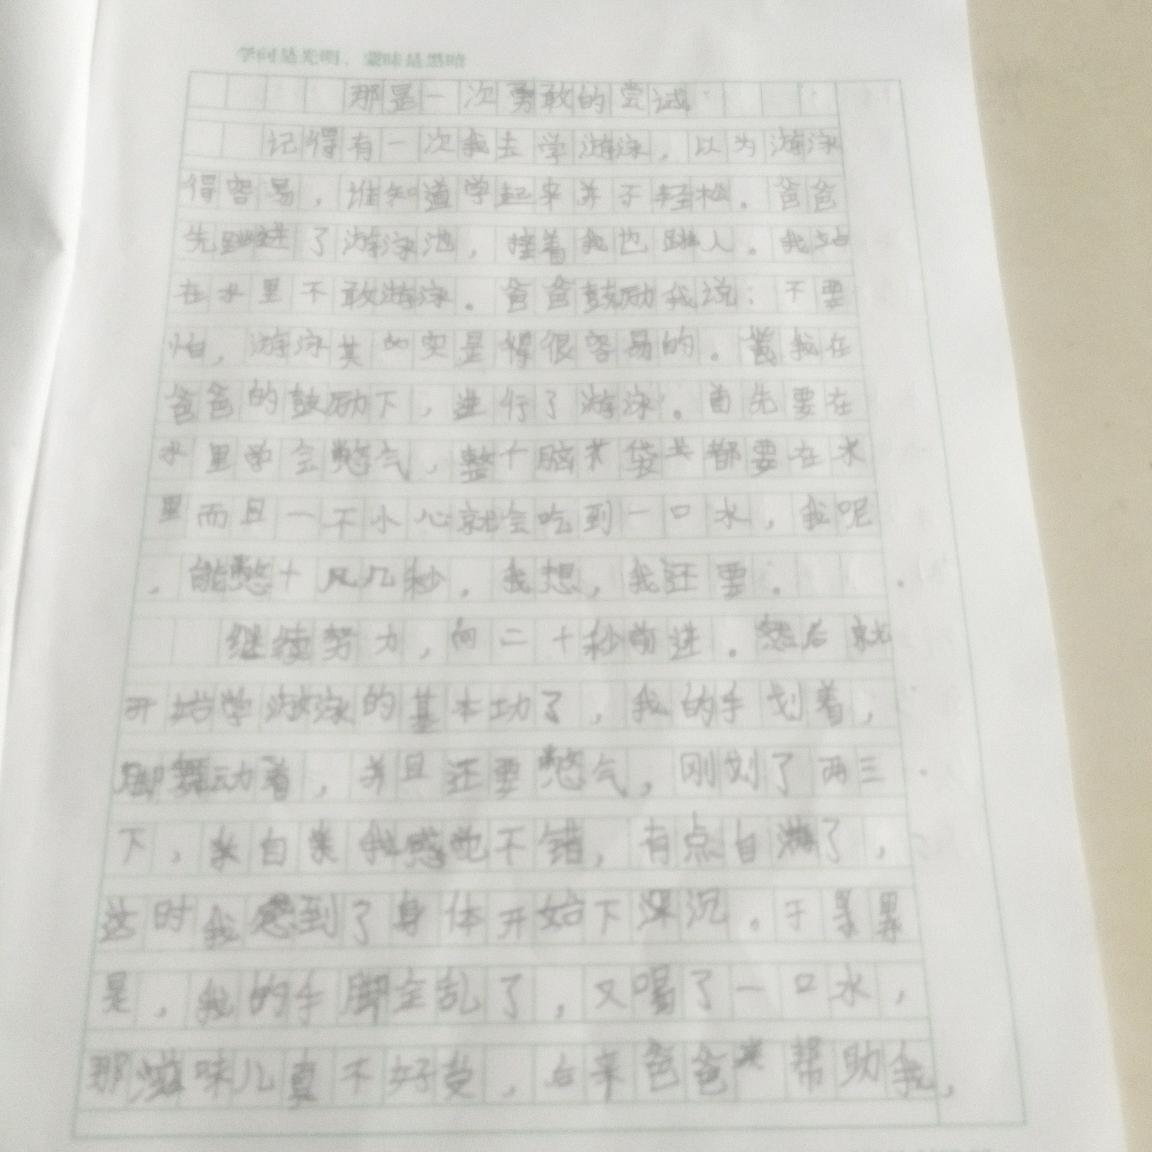 学问是光明，蒙昧是黑暗
那是一次勇敢的尝试
记得有一次我去学游泳，以为游泳
得容易，谁知道学起来并不轻松。爸爸
先跳进了游泳池，接着我也跳入。我站
在水里不敢游泳。爸爸鼓励我说：不要
怕，游泳其实是得很容易的。我在
爸爸的鼓励下，进行了游泳。首先要在
水里学会憋气，整个脑袋都要在水
里而且一不小心就会吃到一口水，我呢
，能憋十几秒，我想，我还要。
继续努力，向二十秒前进。然后就
开始学游泳的基本功了，我的手划着，
脚舞动着，并且还要憋气，刚划了两三
下，我感觉不错，有点自满了，
这时我感到了身体开始下沉。于
是，我的手脚全乱了，又喝了一口水，
那滋味儿真不好受，后来爸爸帮助我，